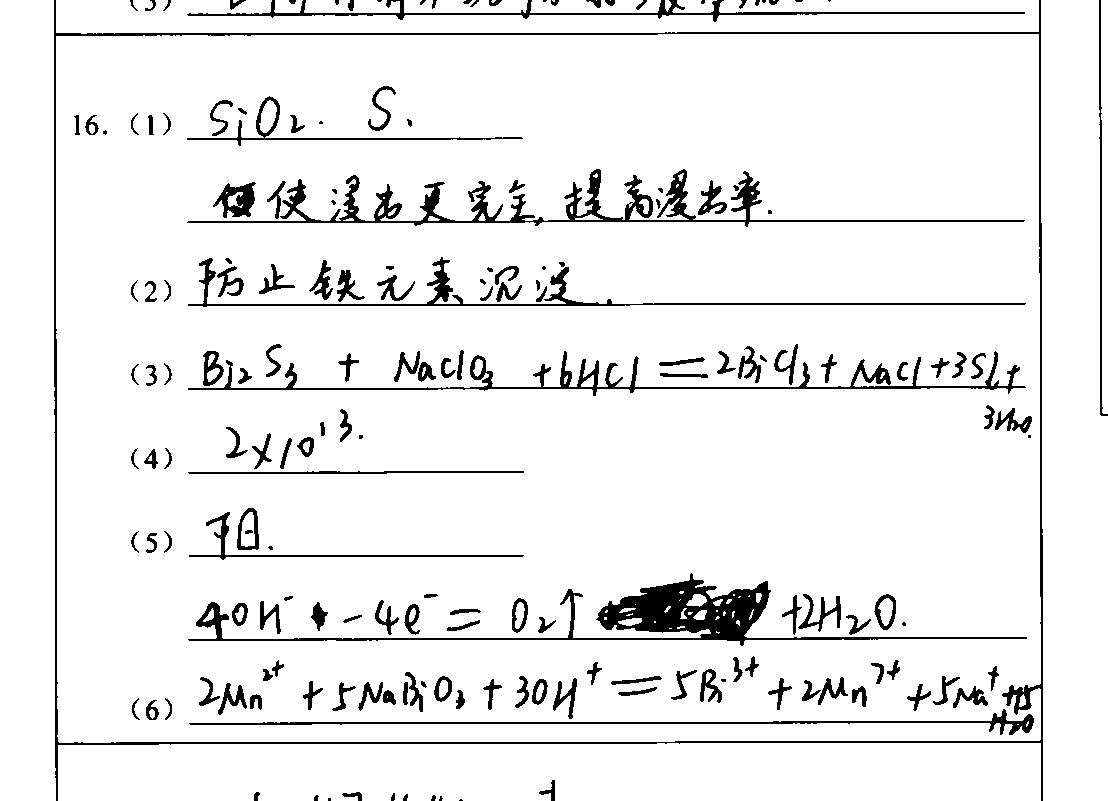 16.（1） SiO₂. S.
使浸出更完全,提高浸出率.
（2） 防止铁元素沉淀.
（3） Bi₂S₃ + NaClO₃ +6HCl = 2BiCl₃ + NaCl +3S↓+
3H₂O.
（4） 2×10¹³.
（5） 阳.
4OH⁻ -4e⁻ = O₂↑ +2H₂O.
（6） 2Mn²⁺ +5NaBiO₃ +30H⁺ = 5Bi³⁺ +2Mn⁷⁺ +5Na⁺ +15
H₂O